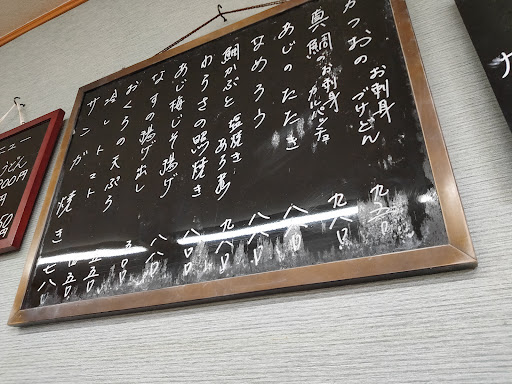 かつおのお刺身 づけどん 九五〇
真鯛のお刺身 カルパッチョ 九八〇
あじのたたき 八八〇
なめろう 八八〇
鯛かぶと 塩焼き あら煮 九八〇
わらさの照焼き 八〇〇
あじ梅じそ揚げ 八〇〇
なすの揚げ出し 八八〇
おくらの天ぷら 五〇〇
冷しトマト 五五〇
サンガ焼き 七八〇
ニュー
うどん
00円
円
50